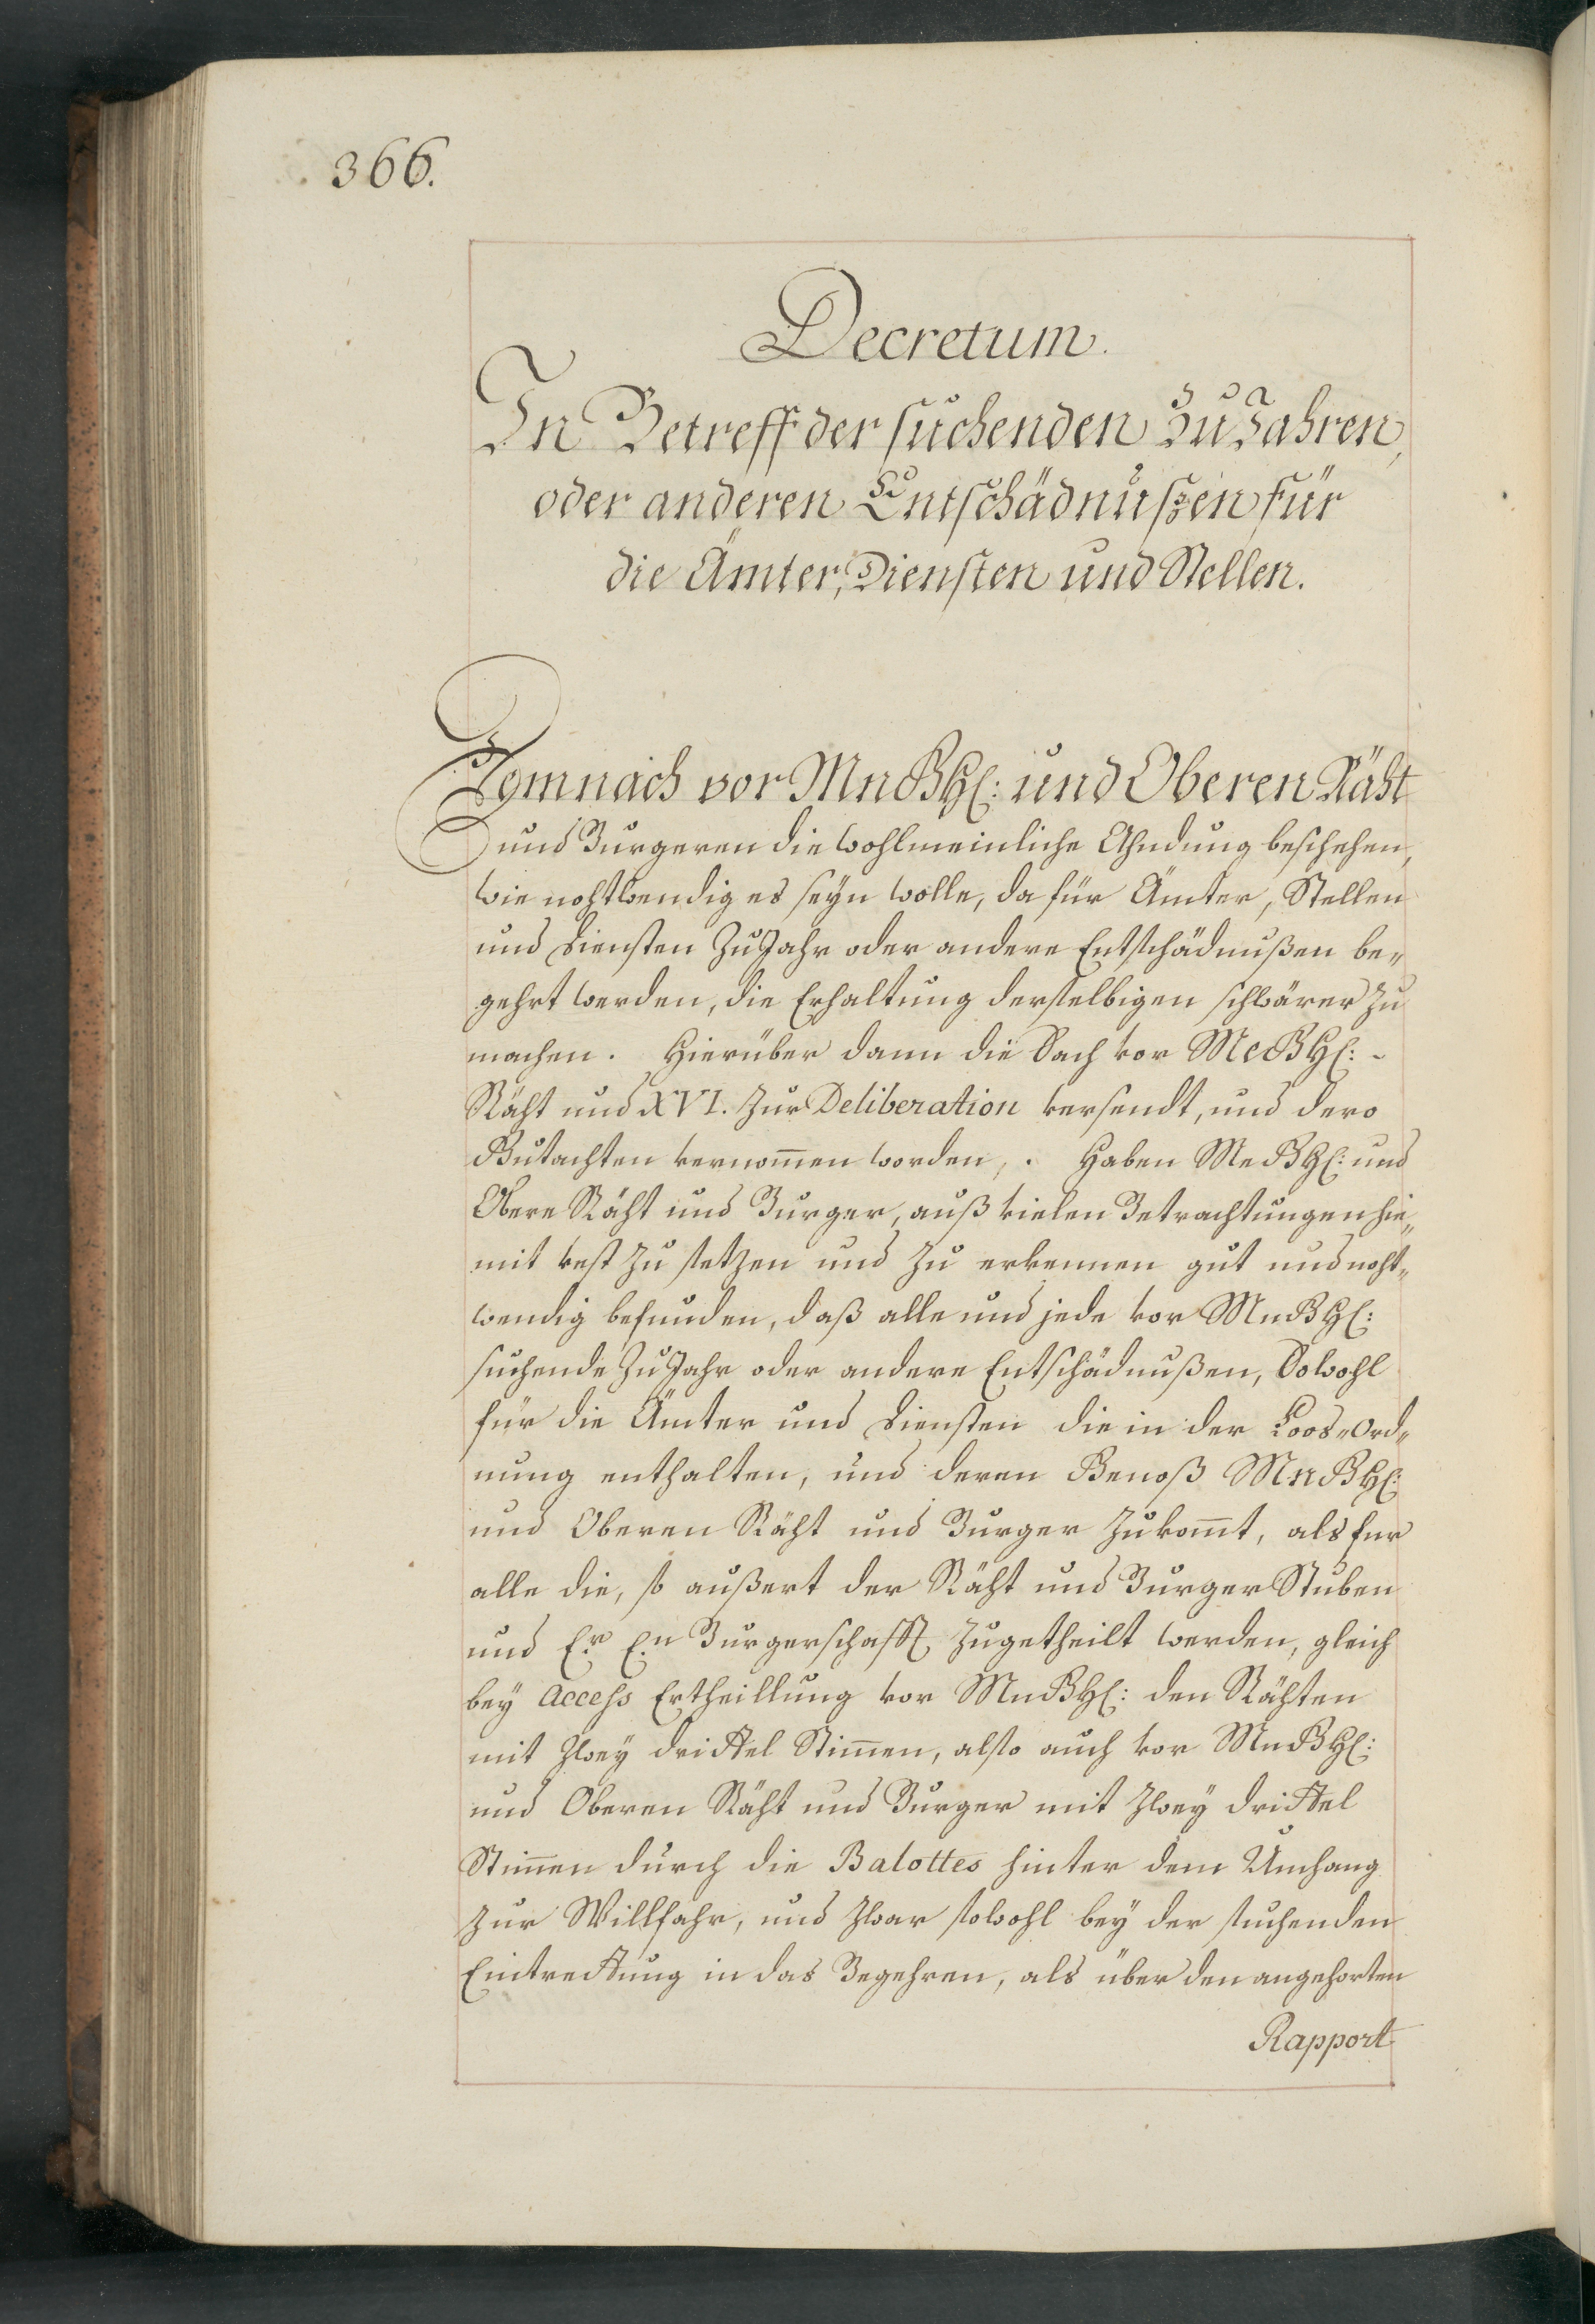 366.
Decretum.
In Betreff der suchenden ZuJahren,
oder anderen Entschädnußen für
die Ämter, Diensten und Stellen.
Demnach vor MnGHH: und Oberen Räht
und Burgeren die wohlmeinliche Ahndung beschehen,
wie nohtwendig es seyn wolle, da für Ämter, Stellen
und Diensten ZuJahr oder andere Entschädnußen be„
gehrt werden, die Erhaltung derselbigen schwärer zu
machen. Hierüber dann die Sach vor MeGHH: -
Räht und XVI. zur Deliberation versendt, und dero
Gutachten vernommen worden, . Haben MeGHH: und
Obere Räht und Burger, auß vielen Betrachtungen hie„
mit vest zu setzen und zu erkennen gut und noht„
wendig befunden, daß alle und jede vor MnGHH:
suchende ZuJahr oder andere Entschädnußen, Sowohl
für die Ämter und Diensten die in der Loos„Ord„
nung enthalten, und deren Genoß MnGHH:
und Oberen Räht und Burger zukomt, als fur
alle die, so außert der Räht und Burger Stuben
und Er. En. Burgerschafft zugetheilt werden, gleich
bey Access Ertheillung vor MnGHH: den Rähten
mit zwey drittel Stimmen, also auch vor MnGHH:
und Oberen Räht und Burger mit zwey drittel
Stimmen durch die Balottes hinter dem Umhang
zur Willfahr, und zwar sowohl bey der suchenden
Eintrettung in das Begehren, als über den angehorten
Rapport